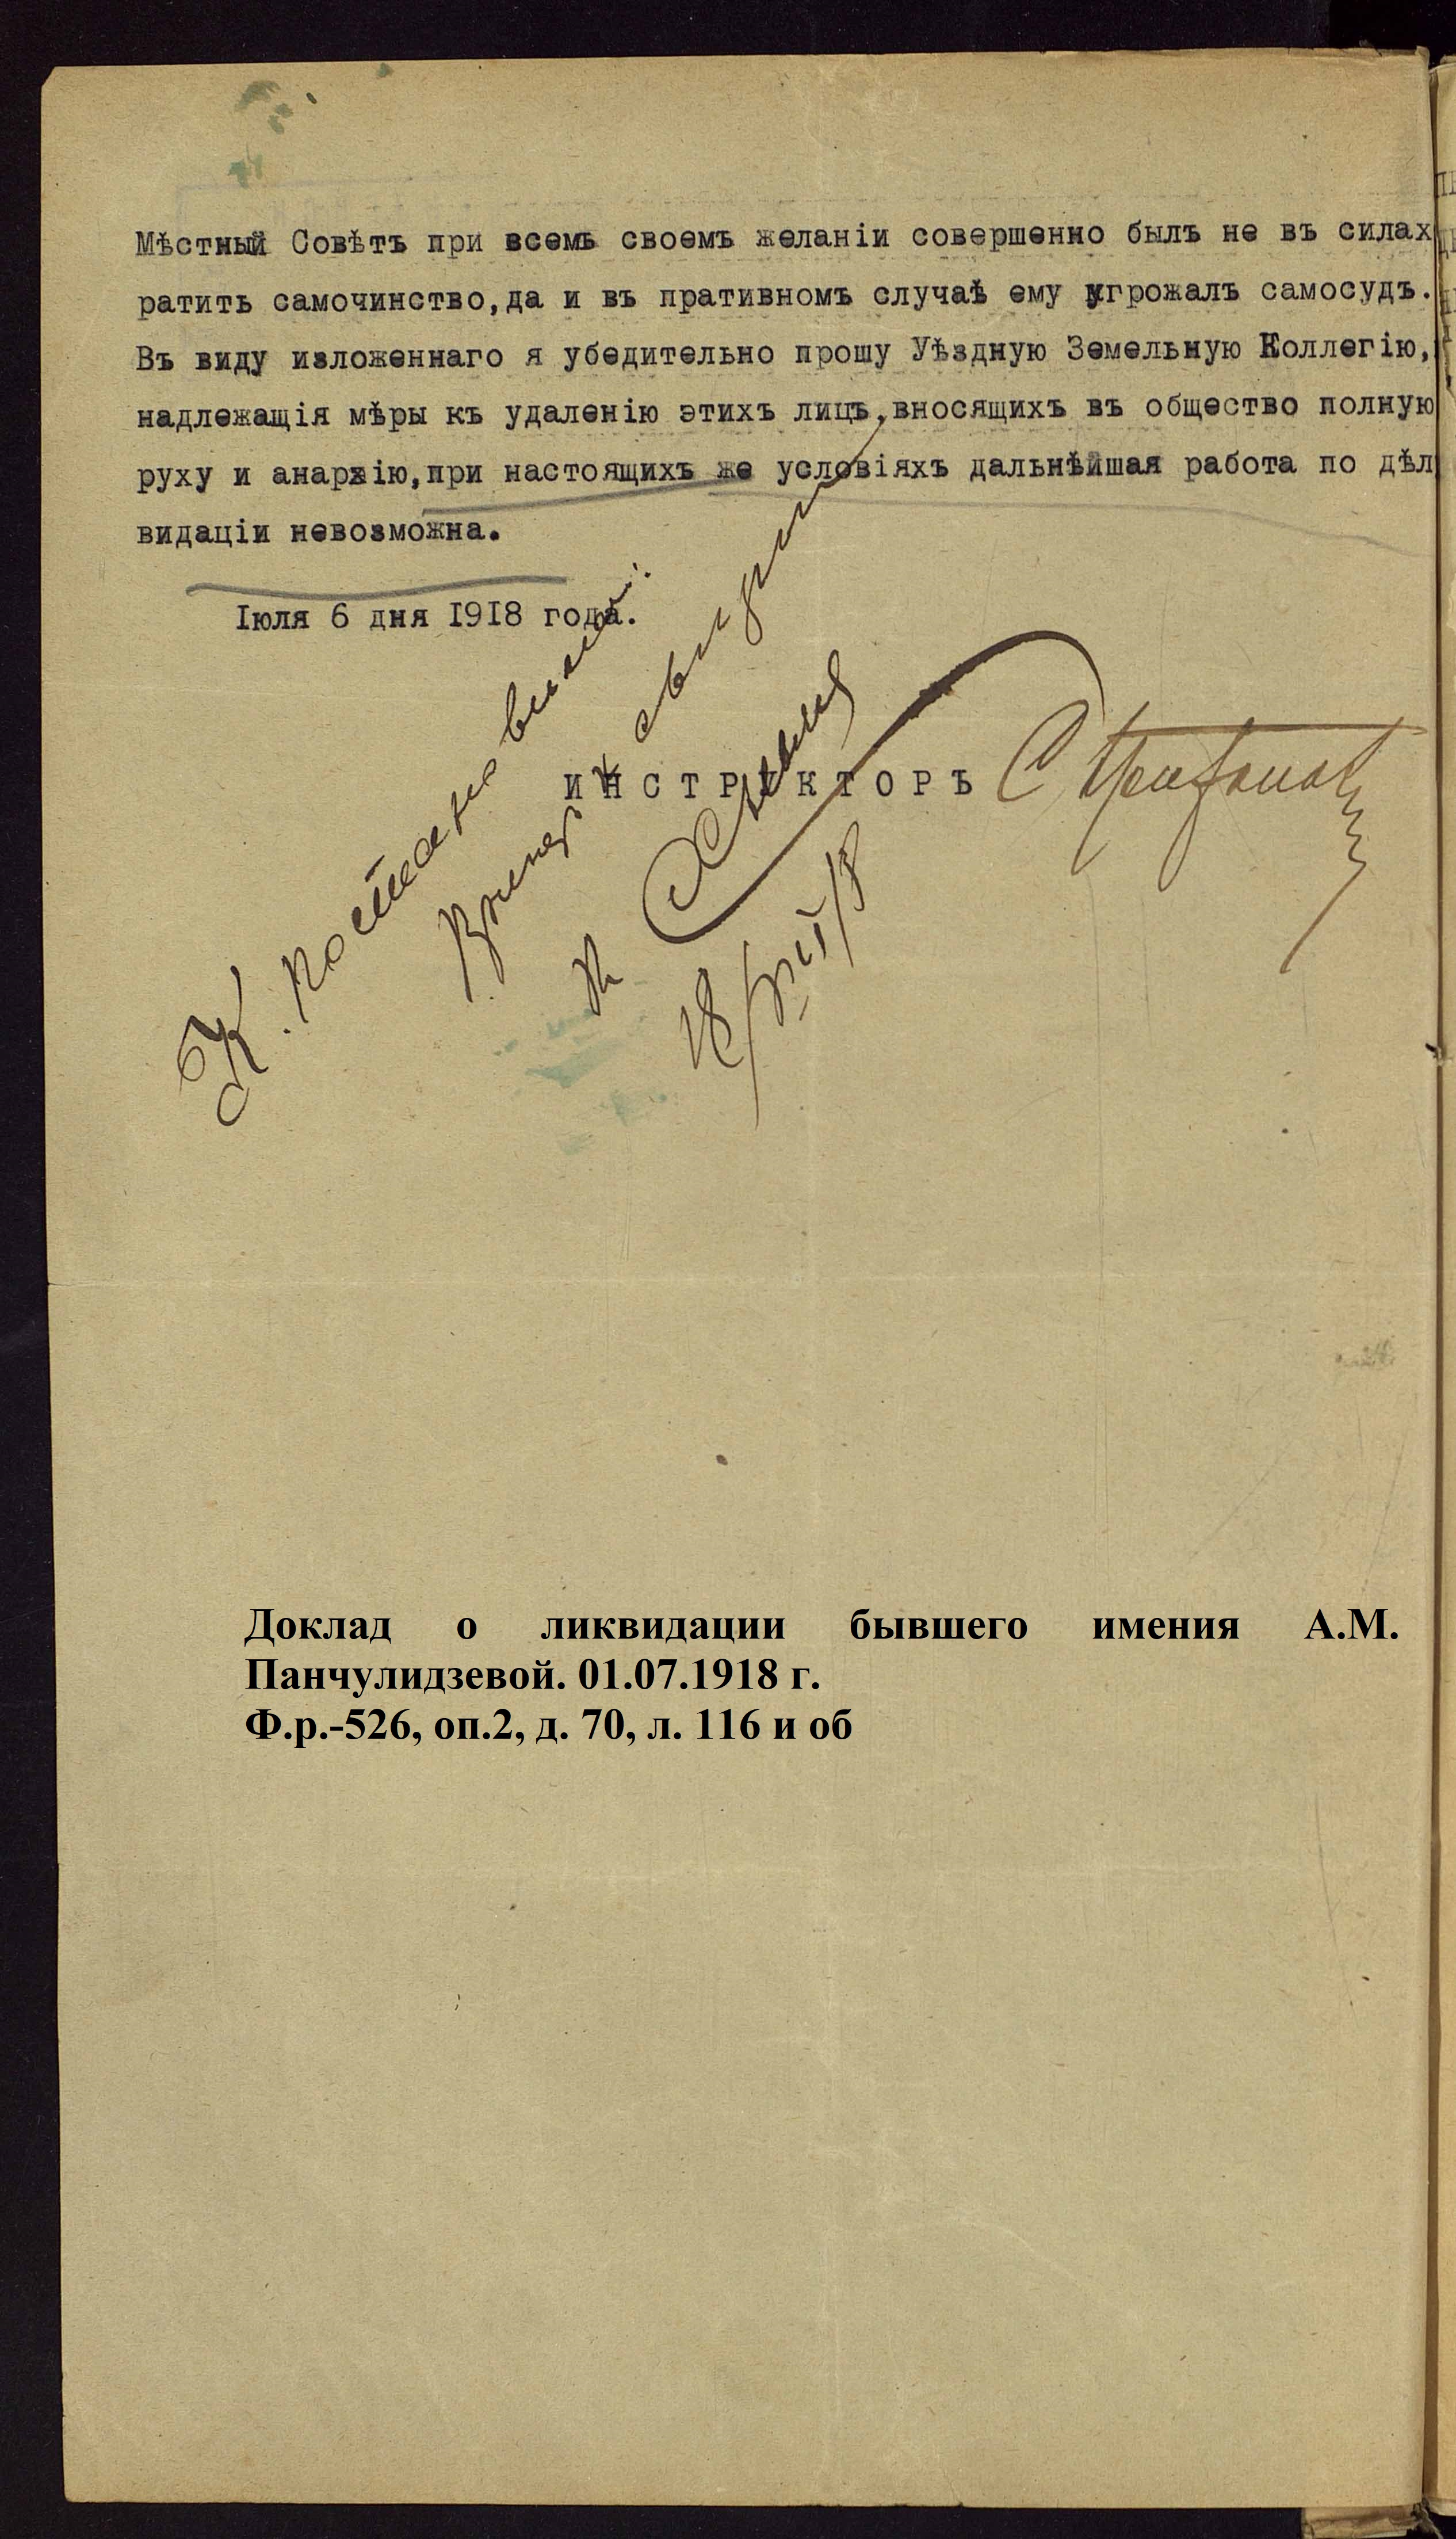 Мѣстный Совѣтъ при всемъ своемъ желаніи совершенно былъ не въ силах
ратить самочинство,да и въ пративномъ случаѣ ему угрожалъ самосудъ.
Въ виду изложеннаго я убедительно прошу Уѣздную Земельную Коллегію,
надлежащія мѣры къ удаленію этихъ лицъ,вносящихъ въ общество полную
руху и анархію,при настоящихъ же условіяхъ дальнѣйшая работа по дѣл
видаціи невозможна.
Іюля 6 дня 1918 года.
ИНСТРУКТОРЪ
К постановленію
18/VII/18
Доклад о ликвидации бывшего имения А.М.
Панчулидзевой. 01.07.1918 г.
Ф.р.-526, оп.2, д. 70, л. 116 и об